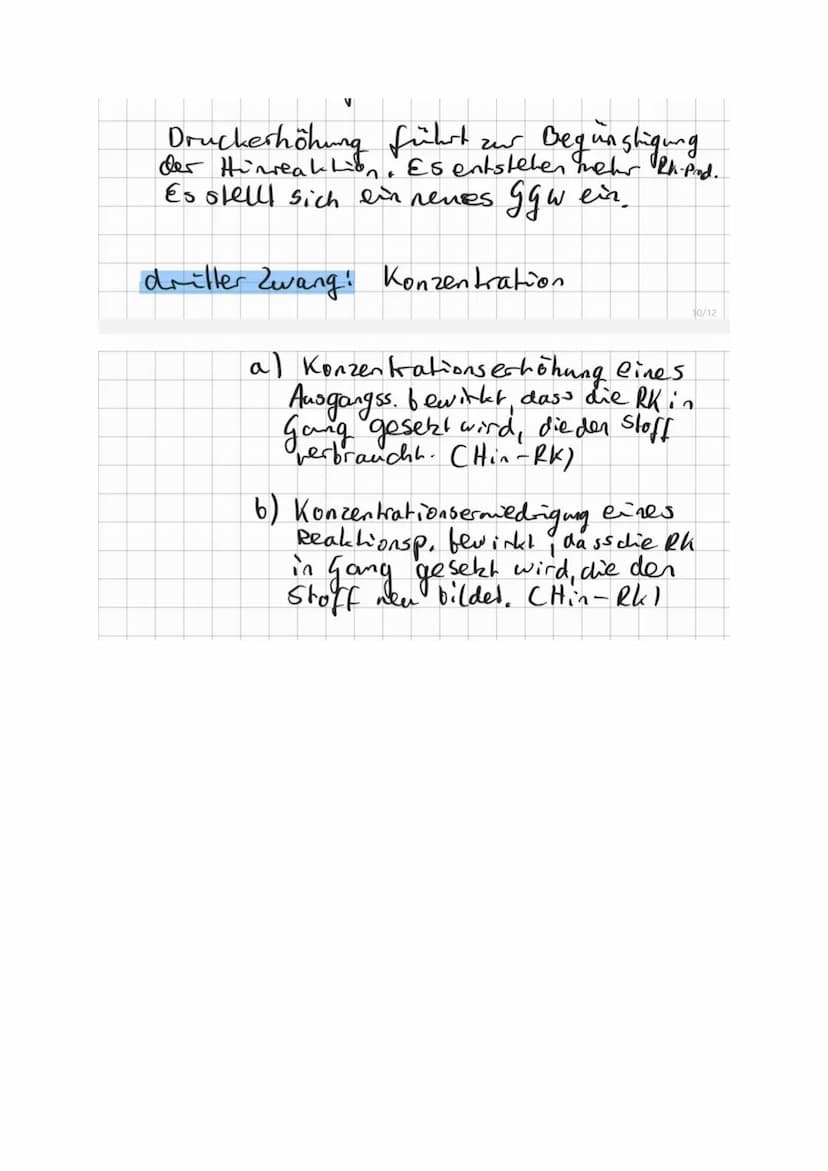 Druckerhöhung führt zur Begünstigung
der Hinreaktion. Es entstehen mehr Rk-Prod.
Es stellt sich ein neues Ggw ein.
dritter Zwang: Konzentration
10/12
a) Konzentrationserhöhung eines
Ausgangss. bewirkt, dass die RK in
Gang gesetzt wird, die den Stoff
verbraucht. (Hin-RK)
b) Konzentrationserniedrigung eines
Reaktionsp. bewirkt, dass die RK
in Gang gesetzt wird, die den
Stoff neu bildet. (Hin-Rk)